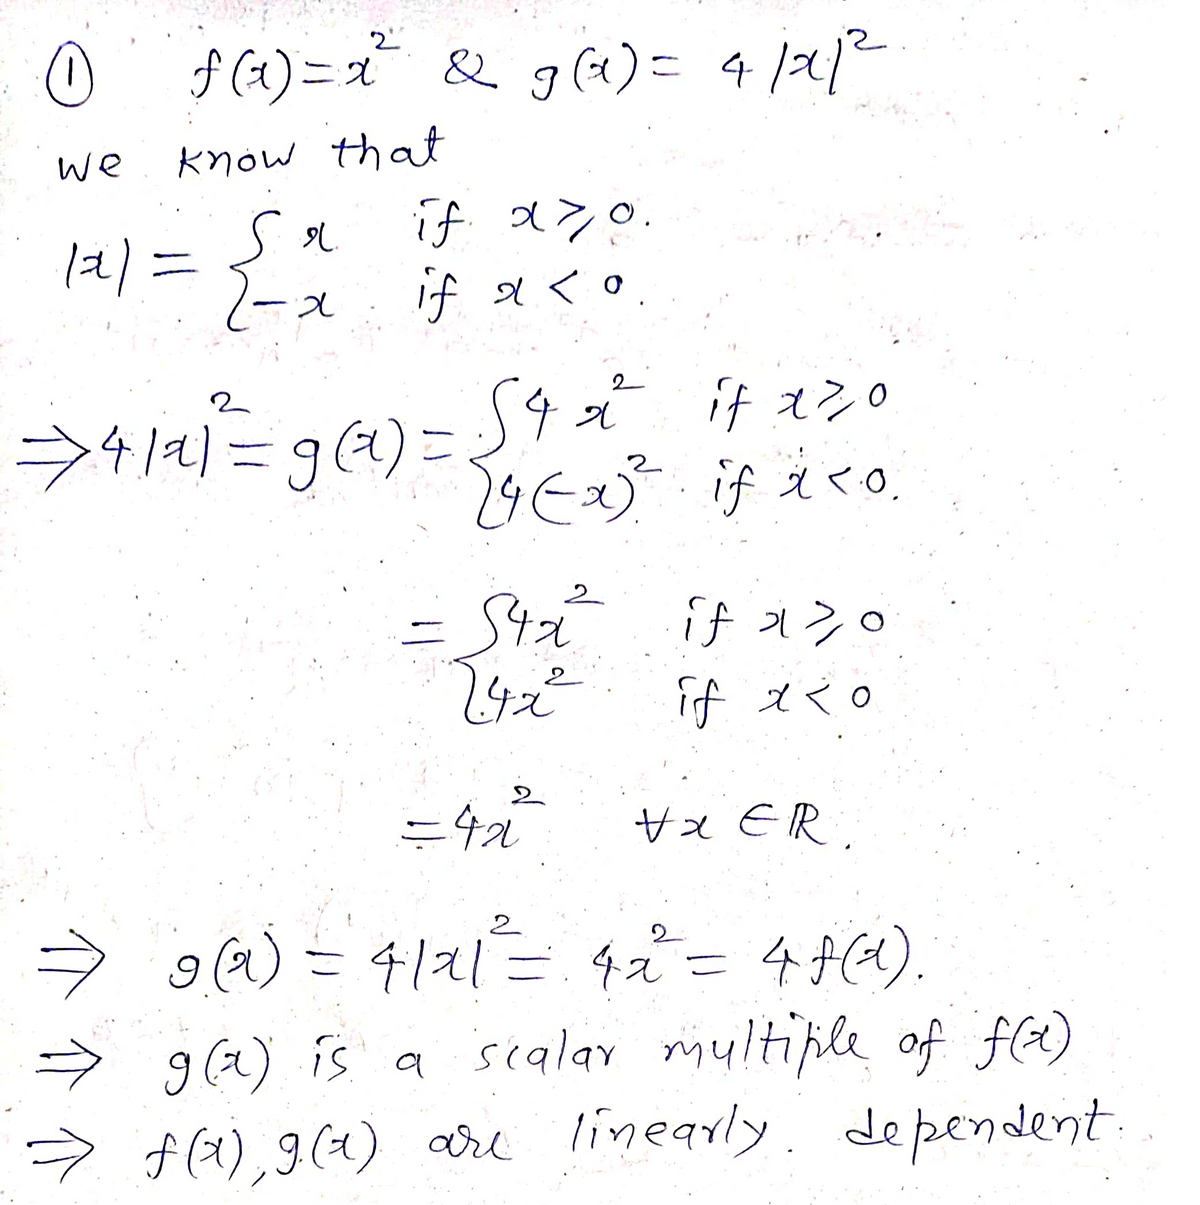 ① f(x)=x² & g(x)= 4|x|²
we know that
|x| = { x if x⩾0.
-x if x<0.
⇒4|x|²=g(x)= { 4x² if x⩾0
4(-x)² if x<0.
= { 4x² if x⩾0
4x² if x<0
=4x² ∀x∈ℝ.
⇒ g(x) = 4|x|² = 4x² = 4f(x).
⇒ g(x) is a scalar multiple of f(x)
⇒ f(x), g(x) are linearly dependent.